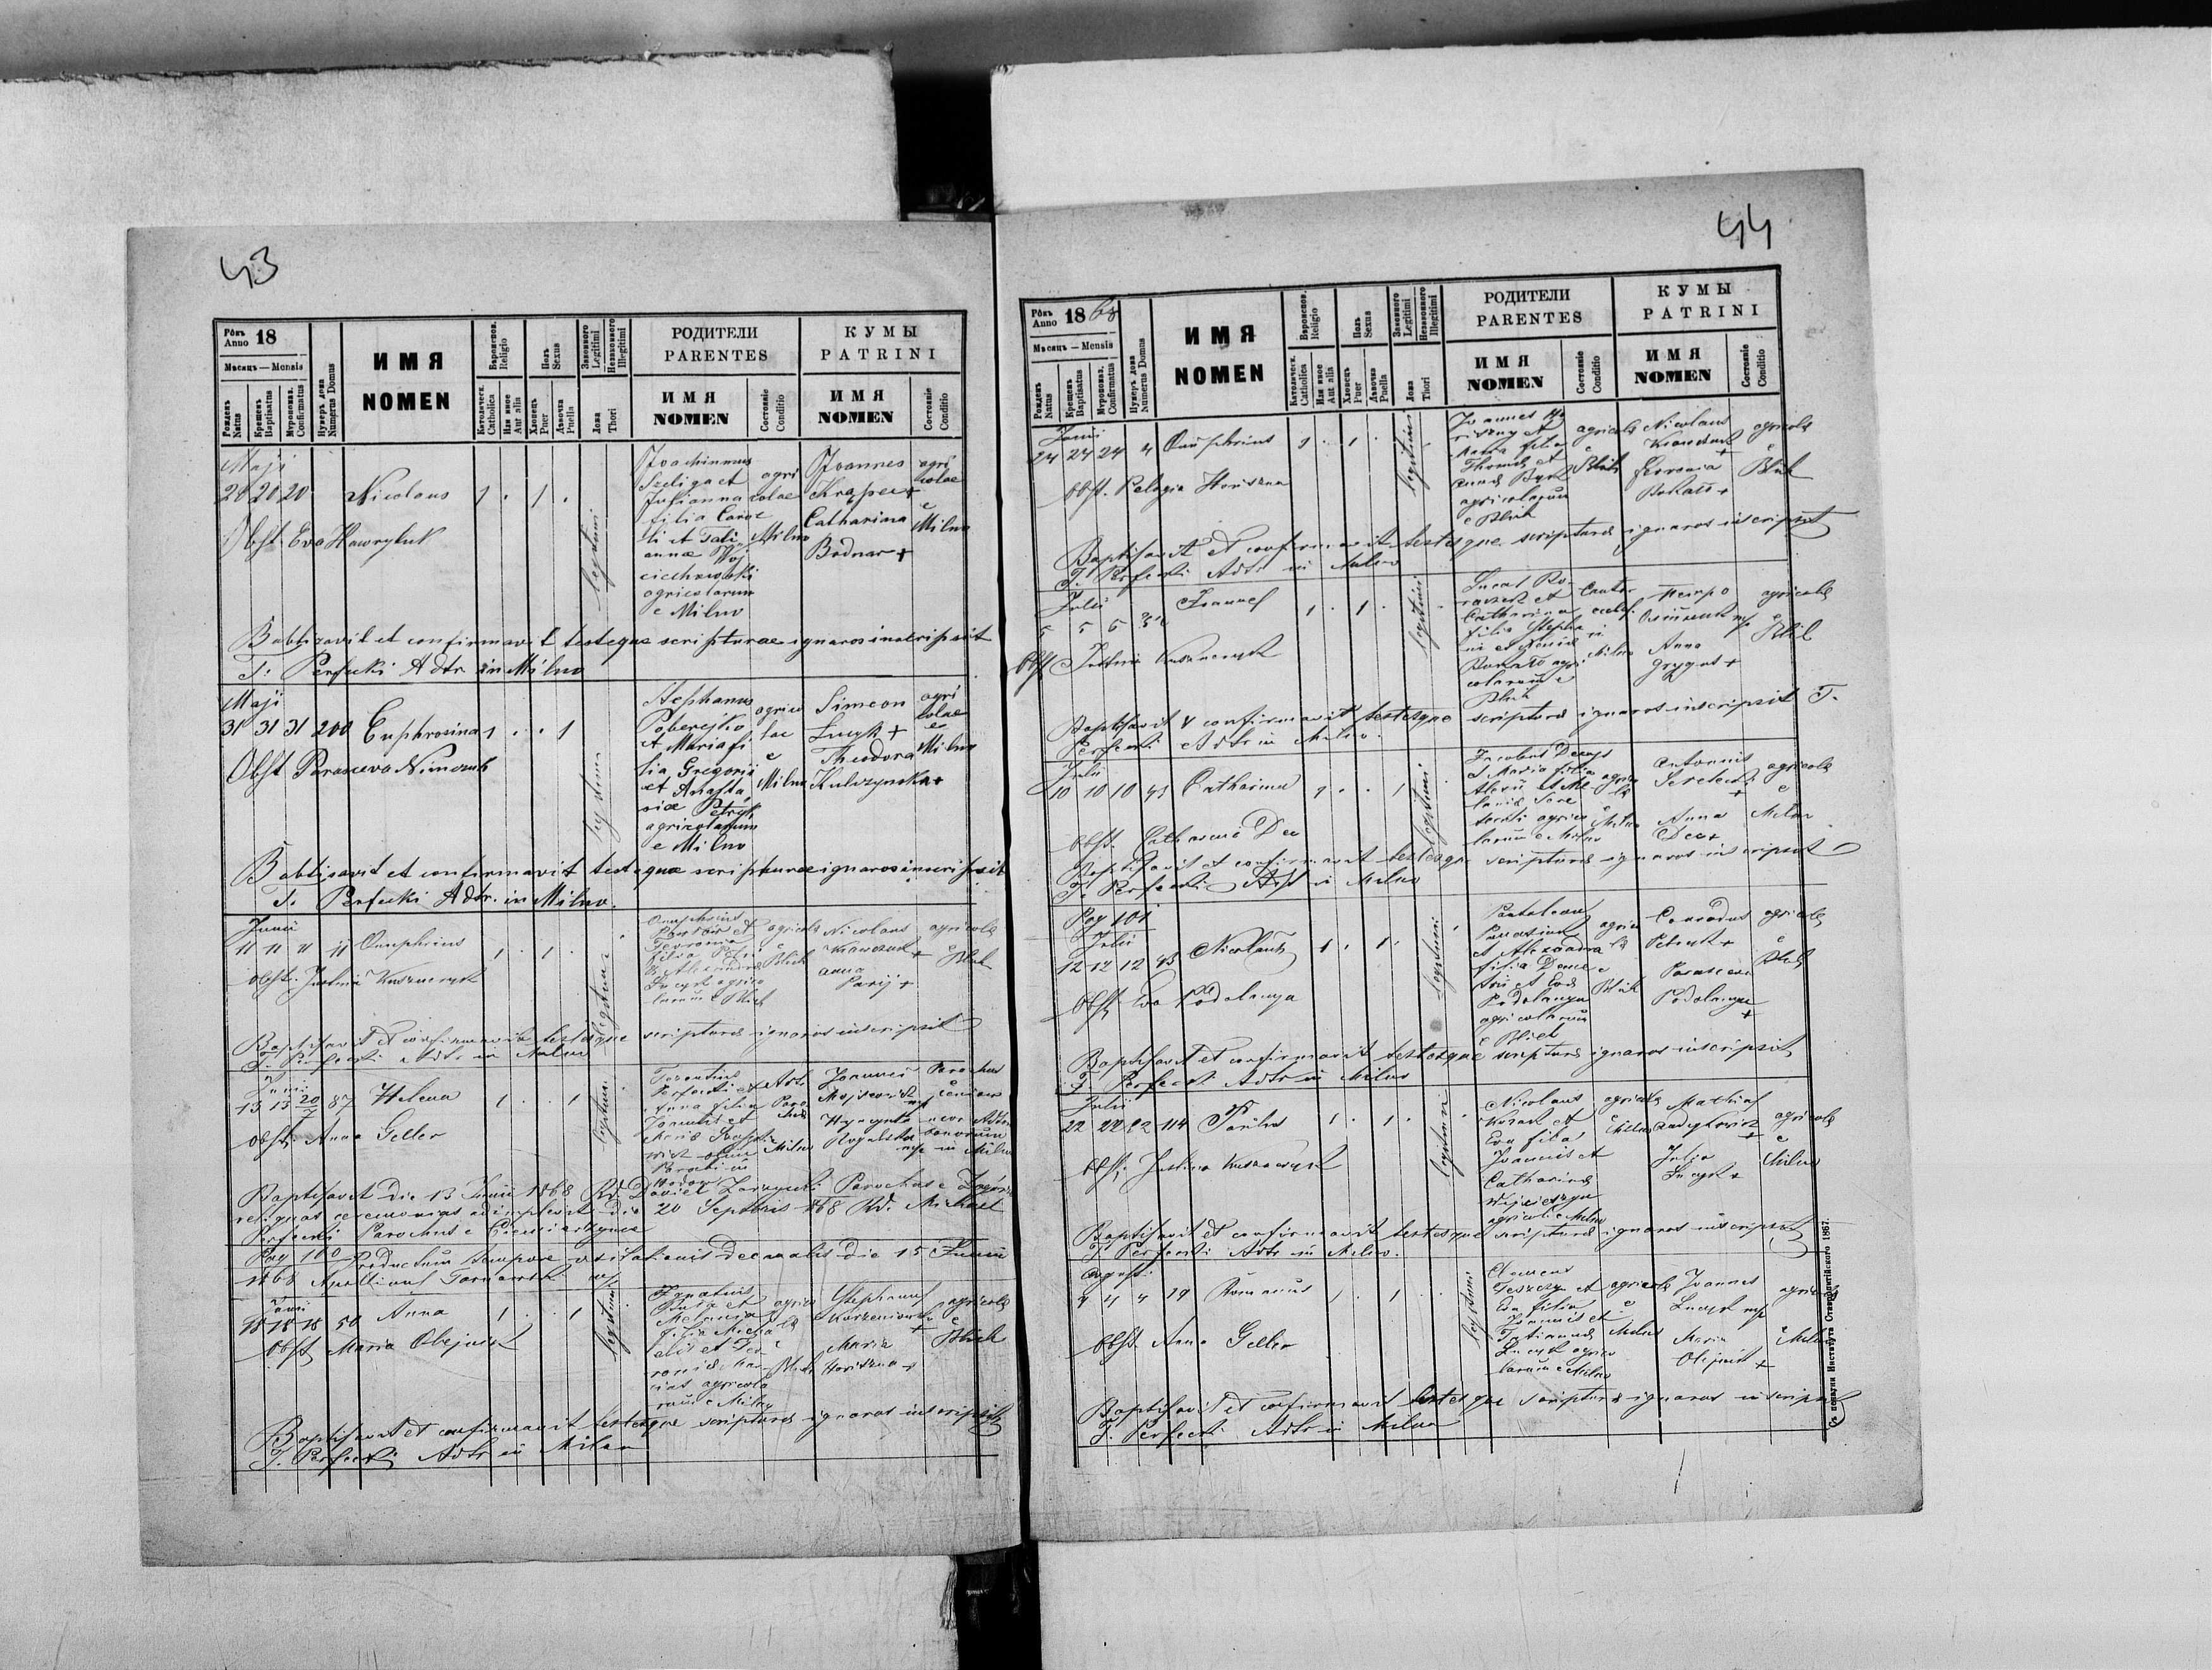 43
Рôкъ Anno 18
Мѣсяцъ — Mensis
Рожденъ Natus
Крещенъ Baptisatus
Мѵропомаз. Confirmatus
Нумеръ дома Numerus Domus
ИМЯ
NOMEN
Вѣроиспов. Religio
Католическ. Catholica
Или иное Aut alia
Полъ Sexus
Хлопецъ Puer
Дѣвочка Puella
Законного Legitimi
Незаконного Illegitimi
Ложа Thori
РОДИТЕЛИ
PARENTES
ИМЯ
NOMEN
Состояніе Conditio
КУМЫ
PATRINI
ИМЯ
NOMEN
Состояніе Conditio
Maji
20 20 20 Nicolaus 1 . 1 .
Obst. Eva Hawryluk
legitimi
Joachimus
Szeliga et
Julianna
filia Caro
li et Tati
annae Woj
ciechowski
agricolarum
e Milno
agri
colae
e
Milno
Joannes
Krąpec +
Catharina
Bodnar +
agri
colae
e
Milno
Babtizavit et confirmavit testeque scripturae ignaros inscripsit
T. Perfecki Adtr. in Milno
Maji
31 31 31 200 Euphrosina 1 . . 1
Obst Parasceva Nimczuk
legitimi
Stephanus
Poberejko
et Maria fi
lia Gregorii
et Anasta
siae Petryk
agricolarum
e Milno
agrico
lae
e
Milno
Simeon
Lucyk +
Theodora
Kulczynska +
agri
colae
e
Milno
Babtisavit et confirmavit testeque scripturae ignaros inscripsit
T. Perfecki Adtr. in Milno.
Junii
11 11 11 11 Onuphrius 1 . 1 .
Obst. Justina Kuszneryk
legitimi
Onuphrius
et
Fevronia
filia Petri
& Alexandra
Lucyk agrico
larum e Blich
agricola
e
Blich
Nicolaus
Krawczuk
+
Anna
Parij +
agricola
e
Blich
Baptisavit et confirmavit testesque scripturae ignaros inscripsit
T. Perfecki Adtr in Milno
Junii
13 13 20/7 87 Helena 1 . . 1
Obst. Anna Geller
legitimi
Terentius
Perfecki et
Anna filia
Joannis et
Mariae
olim
Parochi in
Adtr.
Paro
chiae
Milno
Joannes
Parochus
Hyacynta
Rogalska
uxor
bonorum
in Milno
Baptisavit die 13 Junii 1868 Rd. Daniel Parochus e
reliquas ceremonias adimplevit die 20 Septbris 1868 Rd. Michael
Perfecki Parochus e
Pag 100 Productum tempore visitationis decanalis die 15 Junii
1868 Apollinaris Tarnawski mp
Junii
18 18 18 50 Anna 1 . . 1
Obst. Maria Olejnik
legitimi
Ignatius
et
Melania
filia Micha
elis et Fev
roniae
agricola
rum e Milno
agrico
la
e
Blich
Stephanus
Korzeniowski
+
Maria
Horiszna +
agricola
e
Blich
Baptisavit et confirmavit testesque scripturae ignaros inscripsit
T. Perfecki Adtr in Milno
44
Рôкъ Anno 1868
Мѣсяцъ — Mensis
Рожденъ Natus
Крещенъ Baptisatus
Мѵропомаз. Confirmatus
Нумеръ дома Numerus Domus
ИМЯ
NOMEN
Вѣроиспов. Religio
Католическ. Catholica
Или иное Aut alia
Полъ Sexus
Хлопецъ Puer
Дѣвочка Puella
Законного Legitimi
Незаконного Illegitimi
Ложа Thori
РОДИТЕЛИ
PARENTES
ИМЯ
NOMEN
Состояніе Conditio
КУМЫ
PATRINI
ИМЯ
NOMEN
Состояніе Conditio
Junii
24 24 24 4 Onuphrius 1 . 1 .
Obst. Pelagia Horiszna
legitimi
Joannes Ho
riszny et
Maria filia
Thomae et
Annae
agricolarum
e Blich
agricola
e
Blich
Nicolaus
Krawczuk
+
Fevronia
+
agricola
e
Blich
Baptisavit et confirmavit testesque scripturae ignaros inscripsit
T. Perfecki Adtr in Milno
Julii
5 5 5 Joannes 1 . 1 .
Obst. Justina Kuszneryk
legitimi
Lucas
et
Catharina
filia Stepha
ni et
agri
colarum e
Blich
Cantor
eccles.
in
Milno
Петро
mp
Anna
Grygus +
agricola
e
Blich
Baptisavit & confirmavit testesque scripturae ignaros inscripsit T.
Perfecki Adtr in Milno.
Julii
10 10 10 43 Catharina 1 . . 1
Obst. Catharina Dec
legitimi
Jacobus
et Maria filia
Alexii et Me
laniae Sere
tecki agrico
larum e Milno
agrico
la
e
Milno
Antonius
Seretecki
+
Anna
Dec +
agricola
e
Milno
Baptisavit et confirmavit testesque scripturae ignaros inscripsit
T. Perfecki Adtr in Milno
Pag 101
Julii
12 12 12 43 Nicolaus 1 . 1 .
Obst. Eva Podolanya
legitimi
Pantaleon
et Alexandra
filia Deme
trii et Evae
Podolanya
agricolarum
e Blich
agrico
la
e
Blich
Conradus
Petruk +
Parasceva
Podolanya
+
agricola
e
Blich
Baptisavit et confirmavit testesque scripturae ignaros inscripsit
T. Perfecki Adtr in Milno
Julii
22 22 22 114 1 . 1 .
Obst. Justina Kuszneryk
legitimi
Nicolaus
Kozak et
Eva filia
Joannis et
Catharinae
agricol. e Milno
agricola
e
Milno
Mathias
+
Julia
Lucyk +
agricola
e
Milno
Baptisavit et confirmavit testesque scripturae ignaros inscripsit
T. Perfecki Adtr in Milno.
August.
4 4 4 19 Romanus 1 . 1 .
Obst. Anna Geller
legitimi
Clemens
et
Eva filia
Joannis et
Tatiannae
Lucyk agrico
larum e Milno
agricola
e
Milno
Joannes
Lucyk mp
Maria
Olejnik +
agricola
e
Milno
Baptisavit et confirmavit testesque scripturae ignaros inscripsit
T. Perfecki Adtr in Milno
Съ печатни Института Ставропигійского 1867.